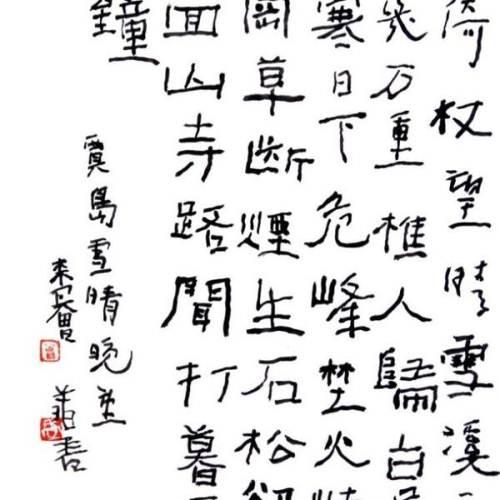 倚杖望晴雪溪
幾万重樵人歸白
寒日下危峰埜火燒
岡草斷煙生石松卻
囬山寺路聞打暮
鐘
賈島雪晴晚望